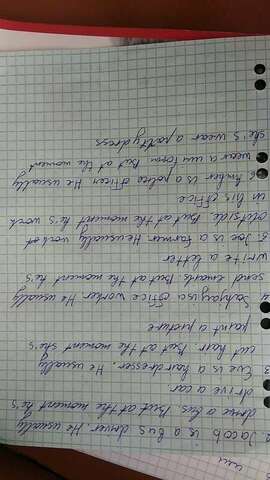 2 Jacob is a bus driver. He usually
drive a bus But at the moment he's
drive a car
3 Eve is a hardresser. He usually
cut hair But at the moment she's
paint a picture
4 Sanjay is a office worker He usually
send emails But at the moment he's
write a letter
5. Joe is a farmer. He usually work at
outside But at the moment he's work
in his office
6. Amber is a police officer He usually
wear a uniform But at the moment
she's wear a party dress